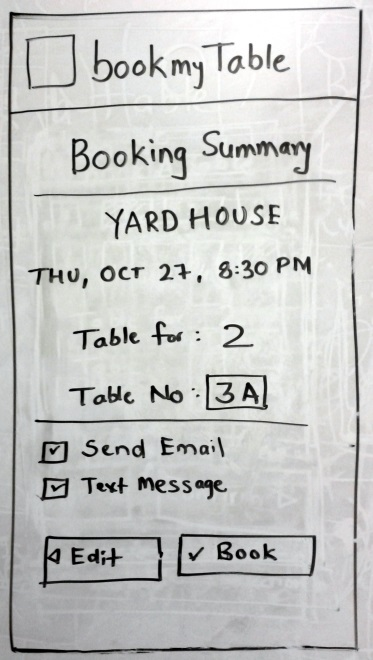 bookmyTable
Booking Summary
YARD HOUSE
THU, OCT 27, 8:30 PM
Table for: 2
Table No: 3A
Send Email
Text Message
Edit
Book